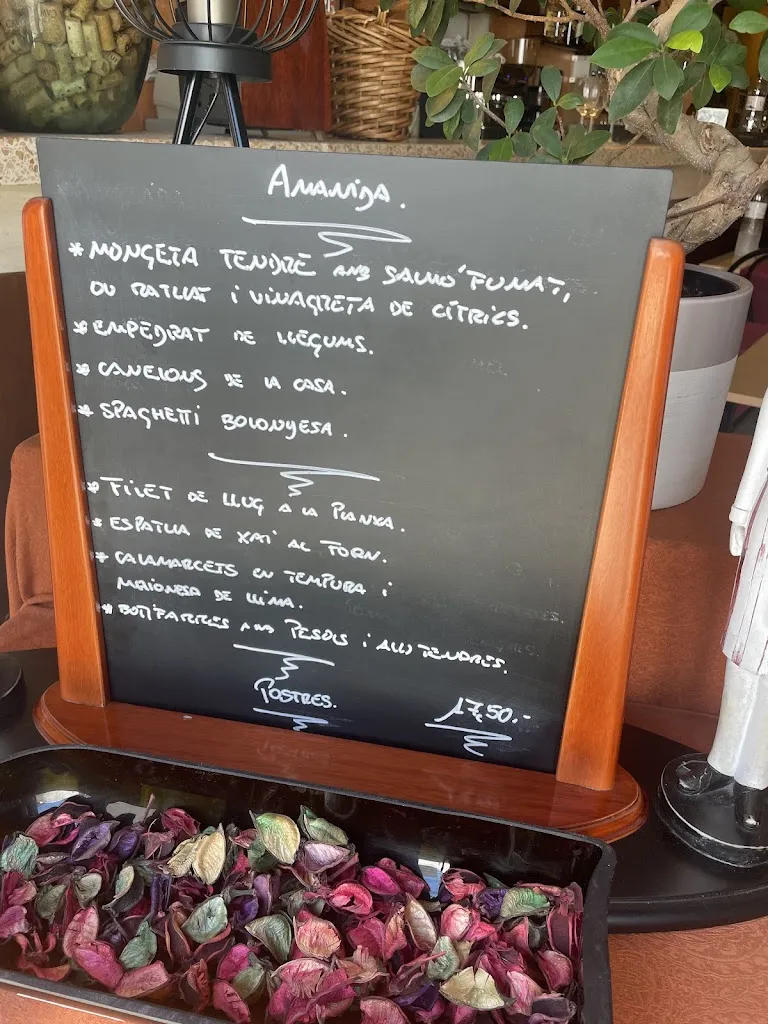 AMANIDA.
* MONGETA TENDRE AMB SALMÓ FUMAT,
OU RATLLAT I VINAGRETA DE CÍTRICS.
* EMPEDRAT DE LLEGUMS.
* CANELONS DE LA CASA.
* SPAGHETTI BOLONYESA.
* FILET DE LLUÇ A LA PLANXA.
* ESPATLLA DE XAI AL FORN.
* CALAMARCETS EN TEMPURA I
MAIONESA DE LLIMA.
* BOTIFARRES AMB PESOLS I ALLS TENDRES.
POSTRES.
17,50.-